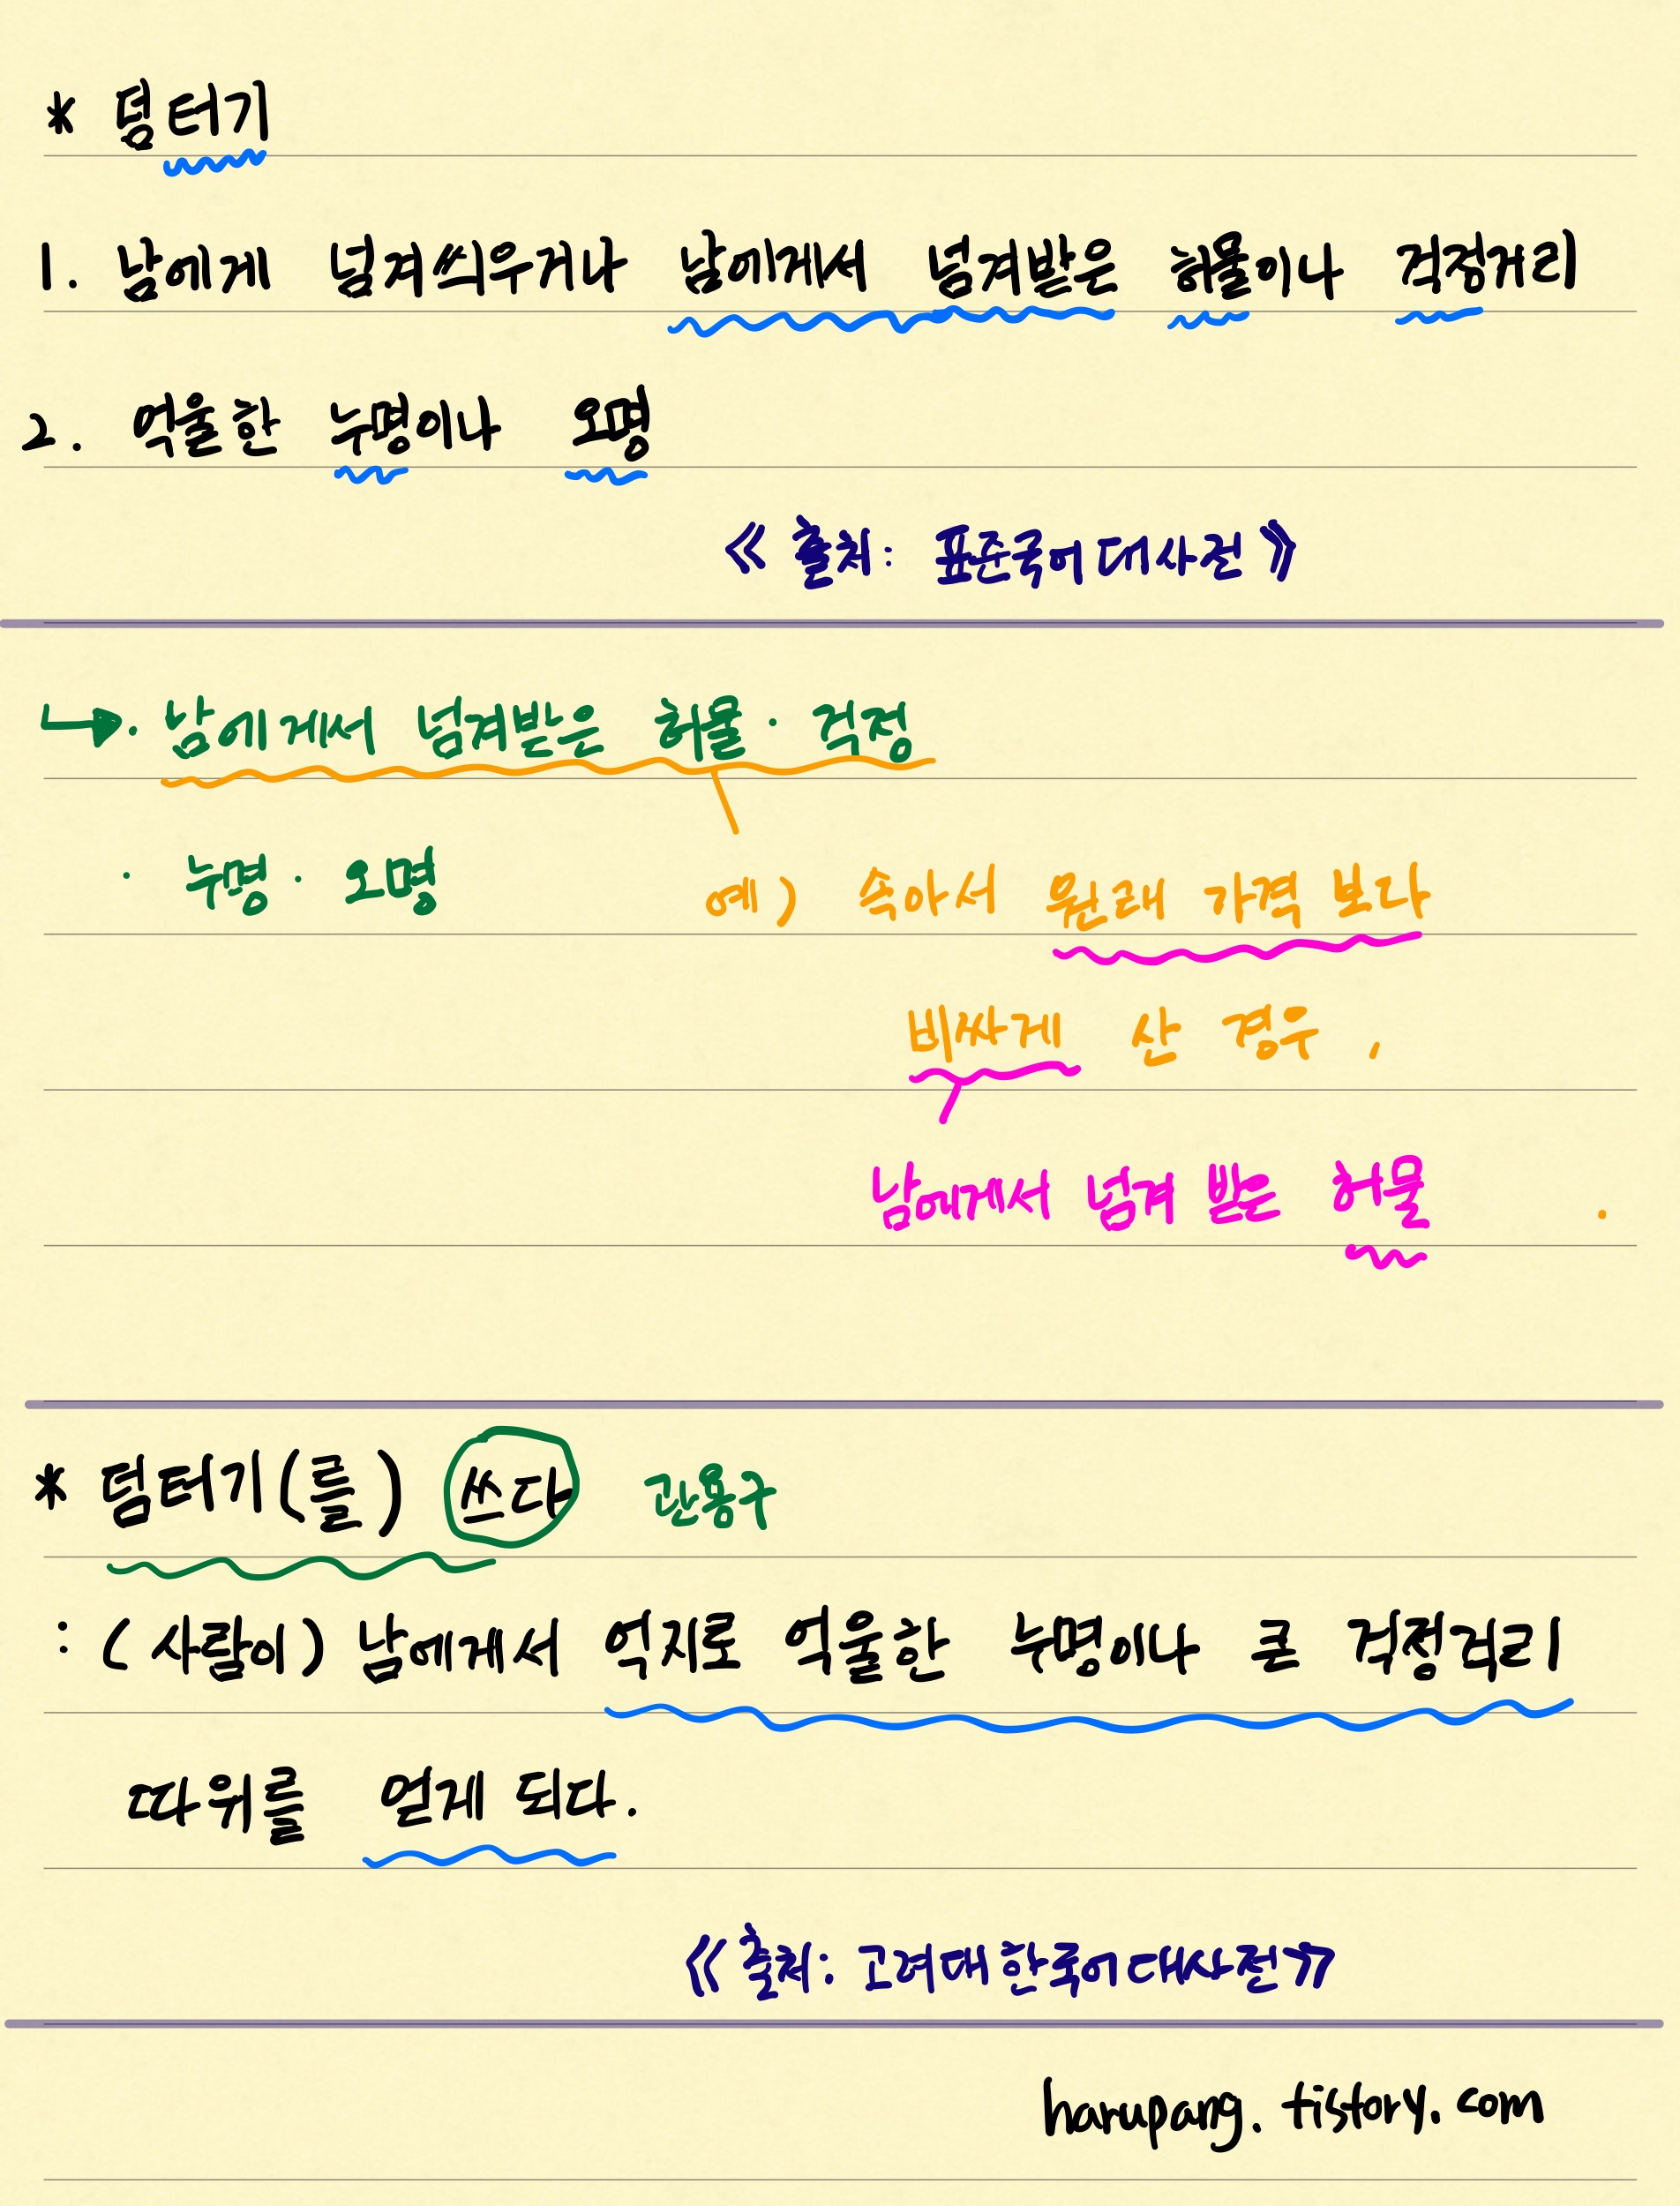 * 덤터기
1. 남에게 넘겨씌우거나 남에게서 넘겨받은 허물이나 걱정거리
2. 억울한 누명이나 오명
《 출처: 표준국어대사전 》
↳ · 남에게서 넘겨받은 허물 · 걱정
· 누명 · 오명
예) 속아서 원래 가격 보다
비싸게 산 경우,
남에게서 넘겨 받은 허물 .
* 덤터기(를) 쓰다 관용구
: (사람이) 남에게서 억지로 억울한 누명이나 큰 걱정거리
따위를 얻게 되다.
《 출처: 고려대 한국어대사전 》
harupang.tistory.com